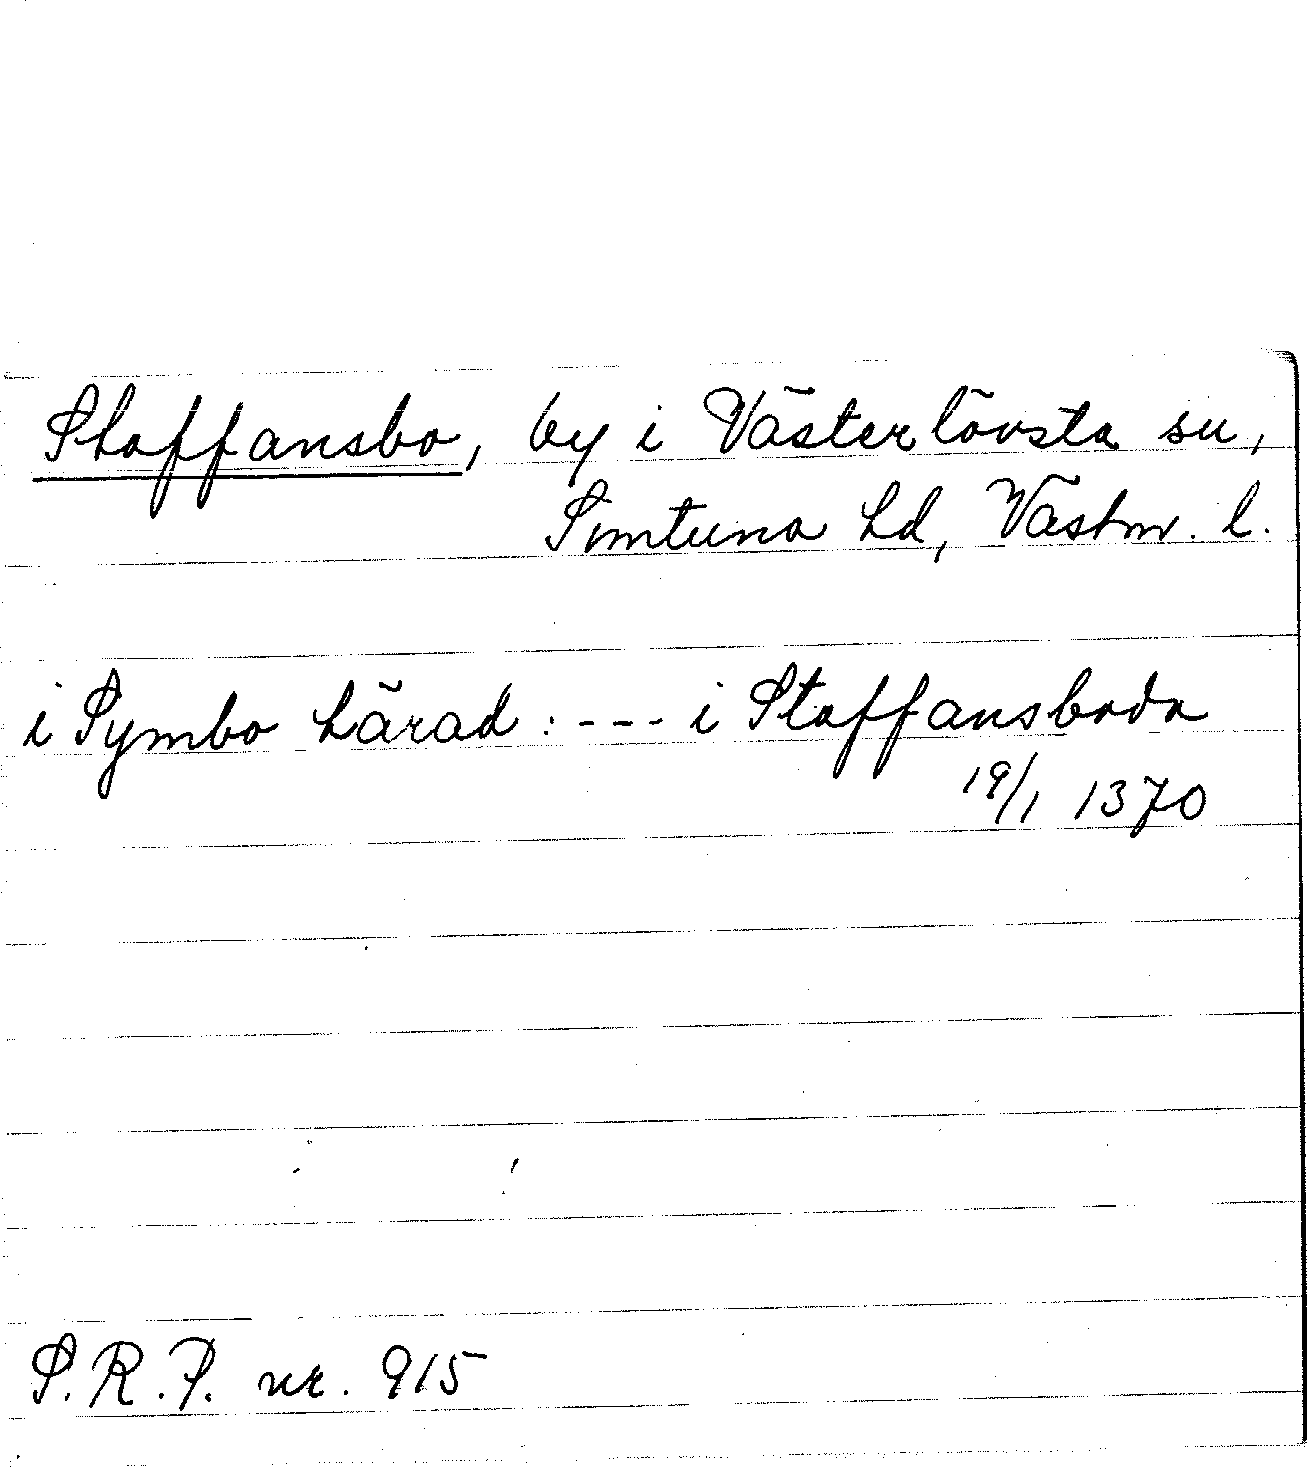 Staffansbo, by i Västerlövsta sn,
Simtuna hd, Västm. l.
i Symbo härad : --- i Staffansboda
19/1 1370
S.R.P. nr. 915